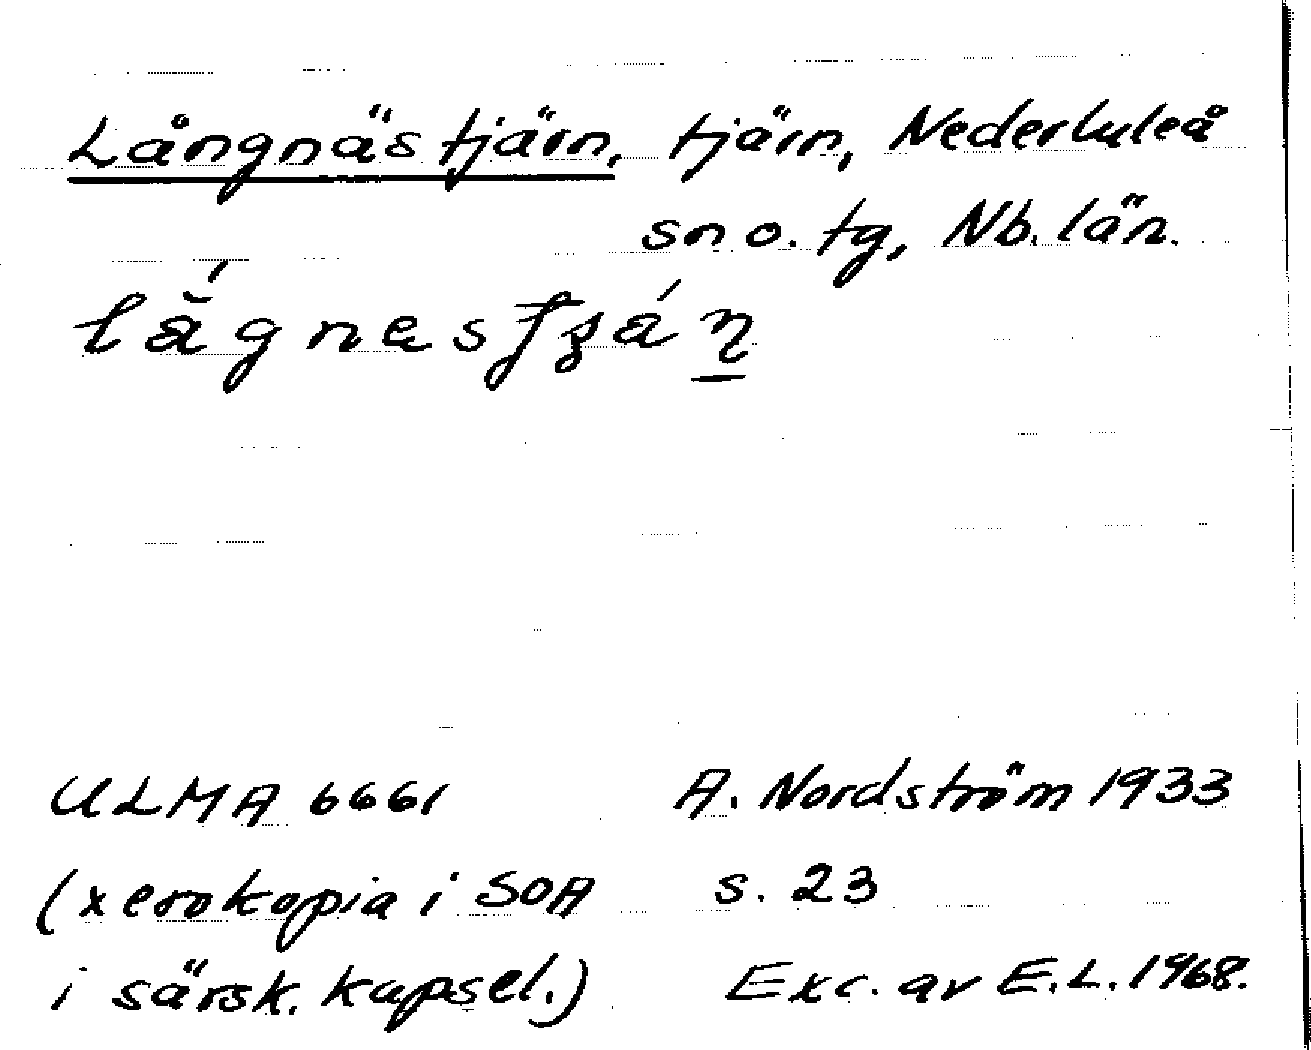 Långnästjärn, tjärn, Nederluleå
sn o. tg, Nb. län.
ULMA 6661 A. Nordström 1933
(xerokopia i SOA s. 23
i särsk. kapsel.) Exc. av E.L. 1968.